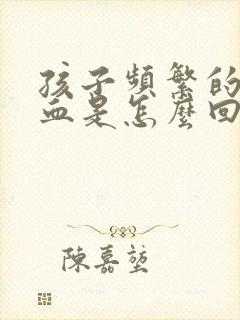 孩子頻繁的
血是怎麼回
陳嘉堃